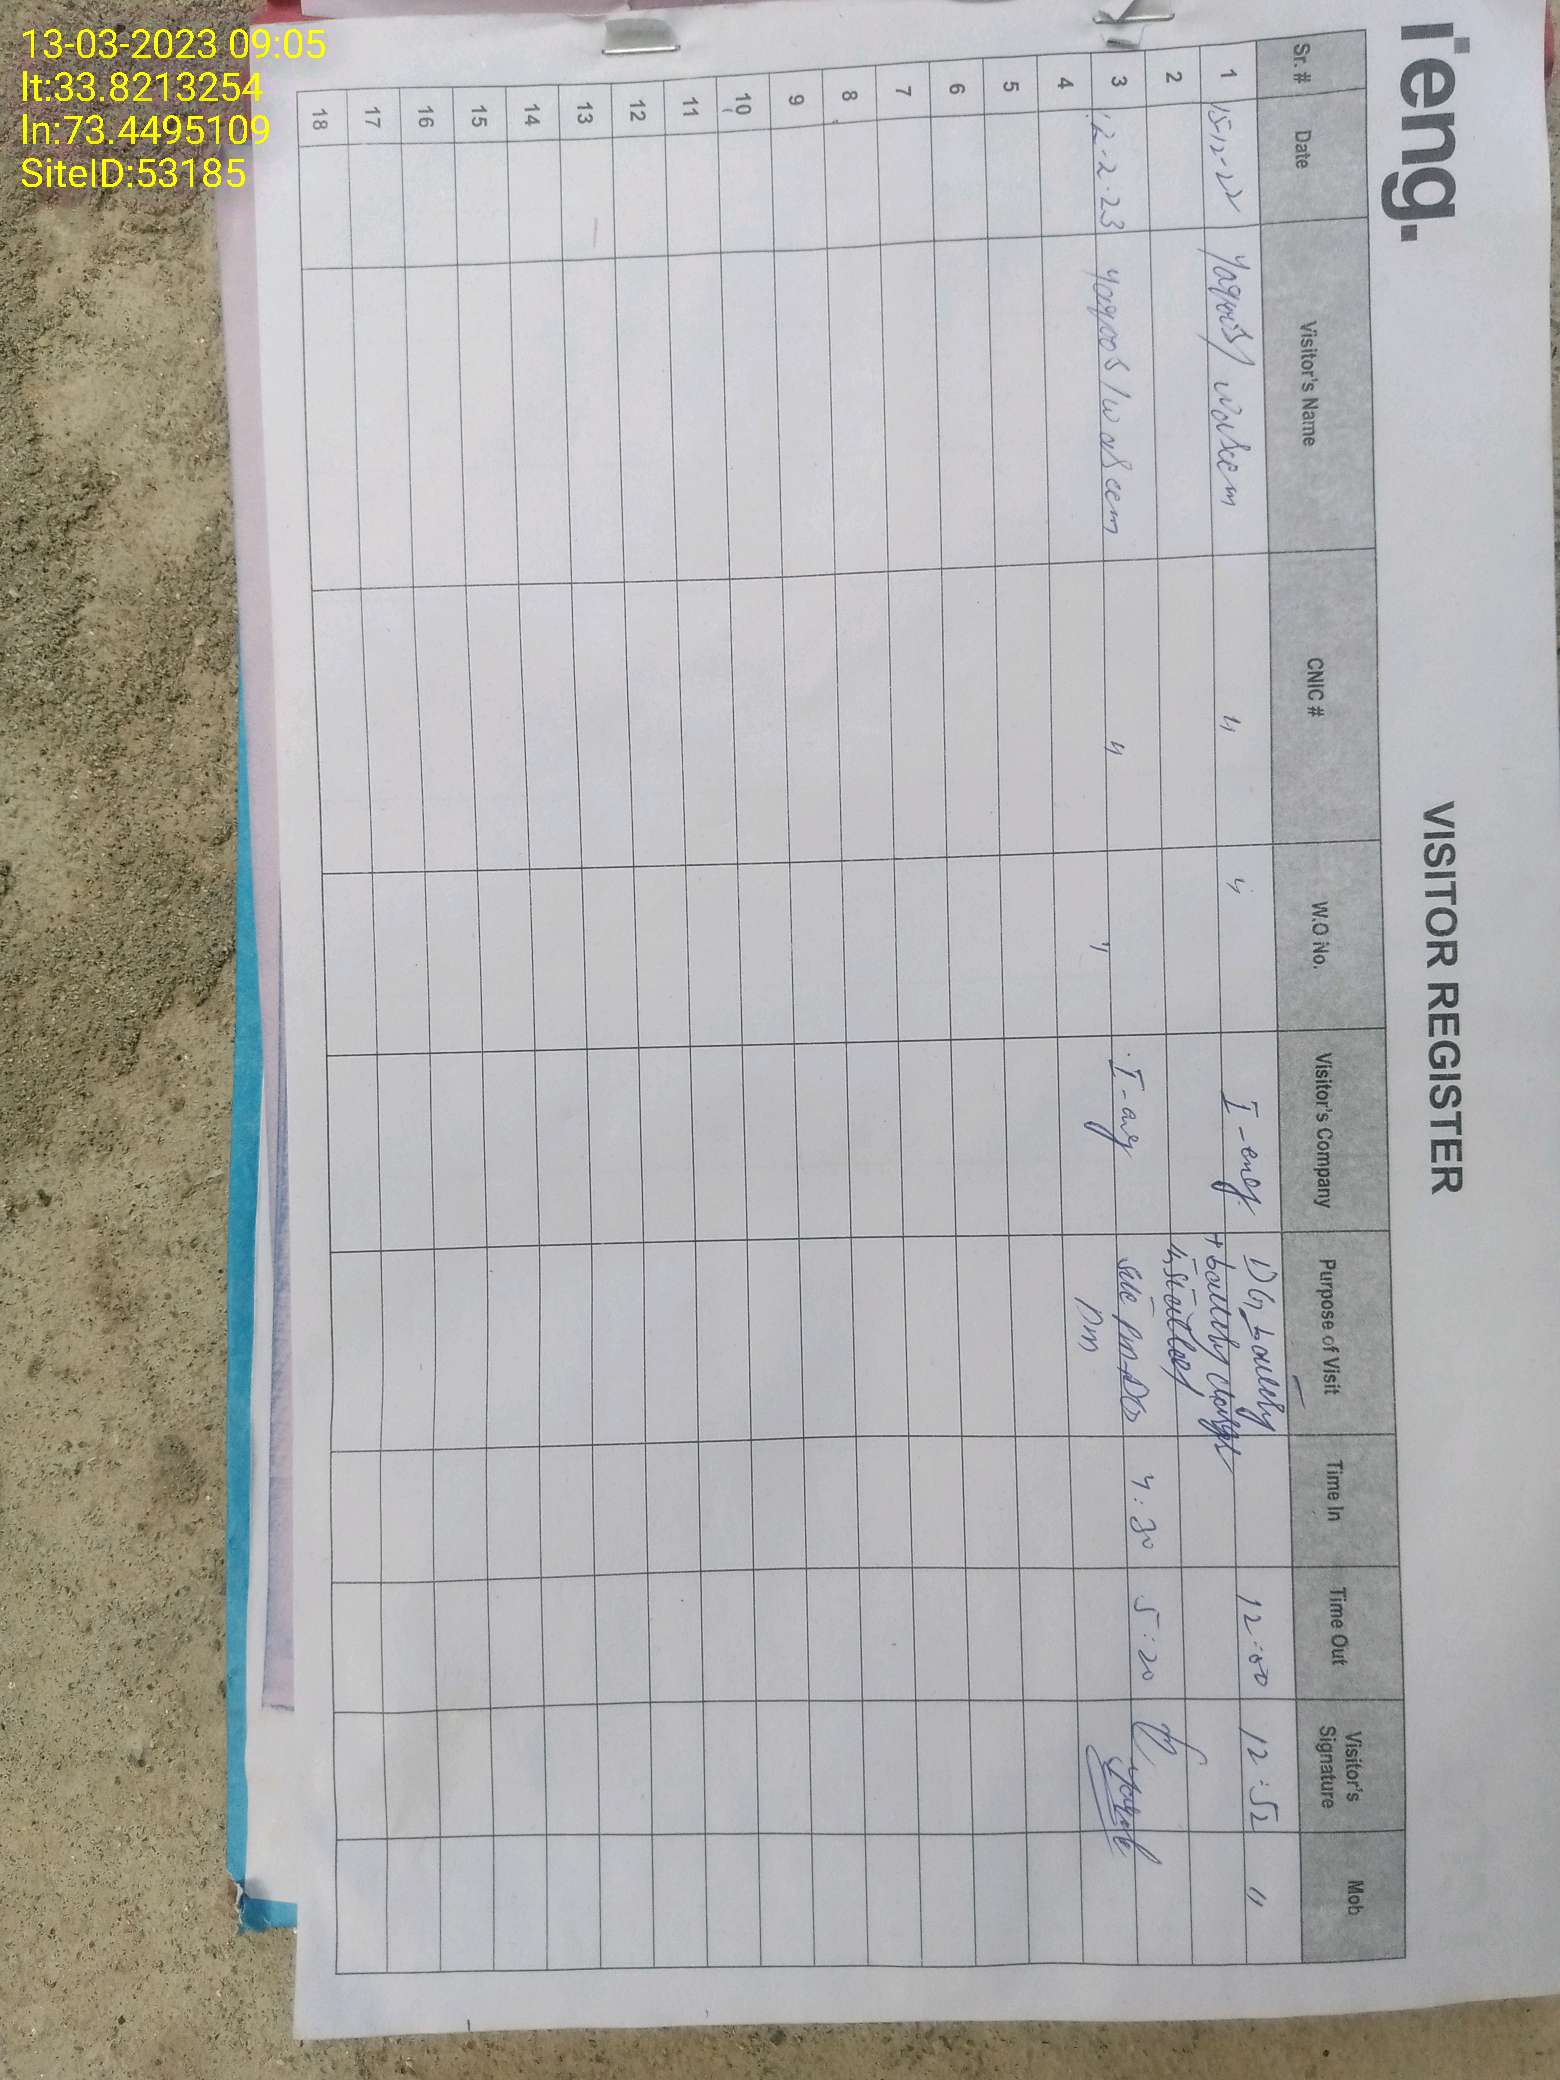 13-03-2023 09:05
lt:33.8213254
ln:73.4495109
SiteID:53185
ieng.
VISITOR REGISTER
Sr. # Date Visitor's Name CNIC # W.O No. Visitor's Company Purpose of Visit Time In Time Out Visitor's Signature Mob
1 15-12-22 Yaqoob/ waseem " " I-eng. DG battery 12:00 12:52 "
+ battery
2
3 12-2-23 Yaqoob/waseem " " I-eng 4:30 5:20
4
5
6
7
8
9
10
11
12
13
14
15
16
17
18